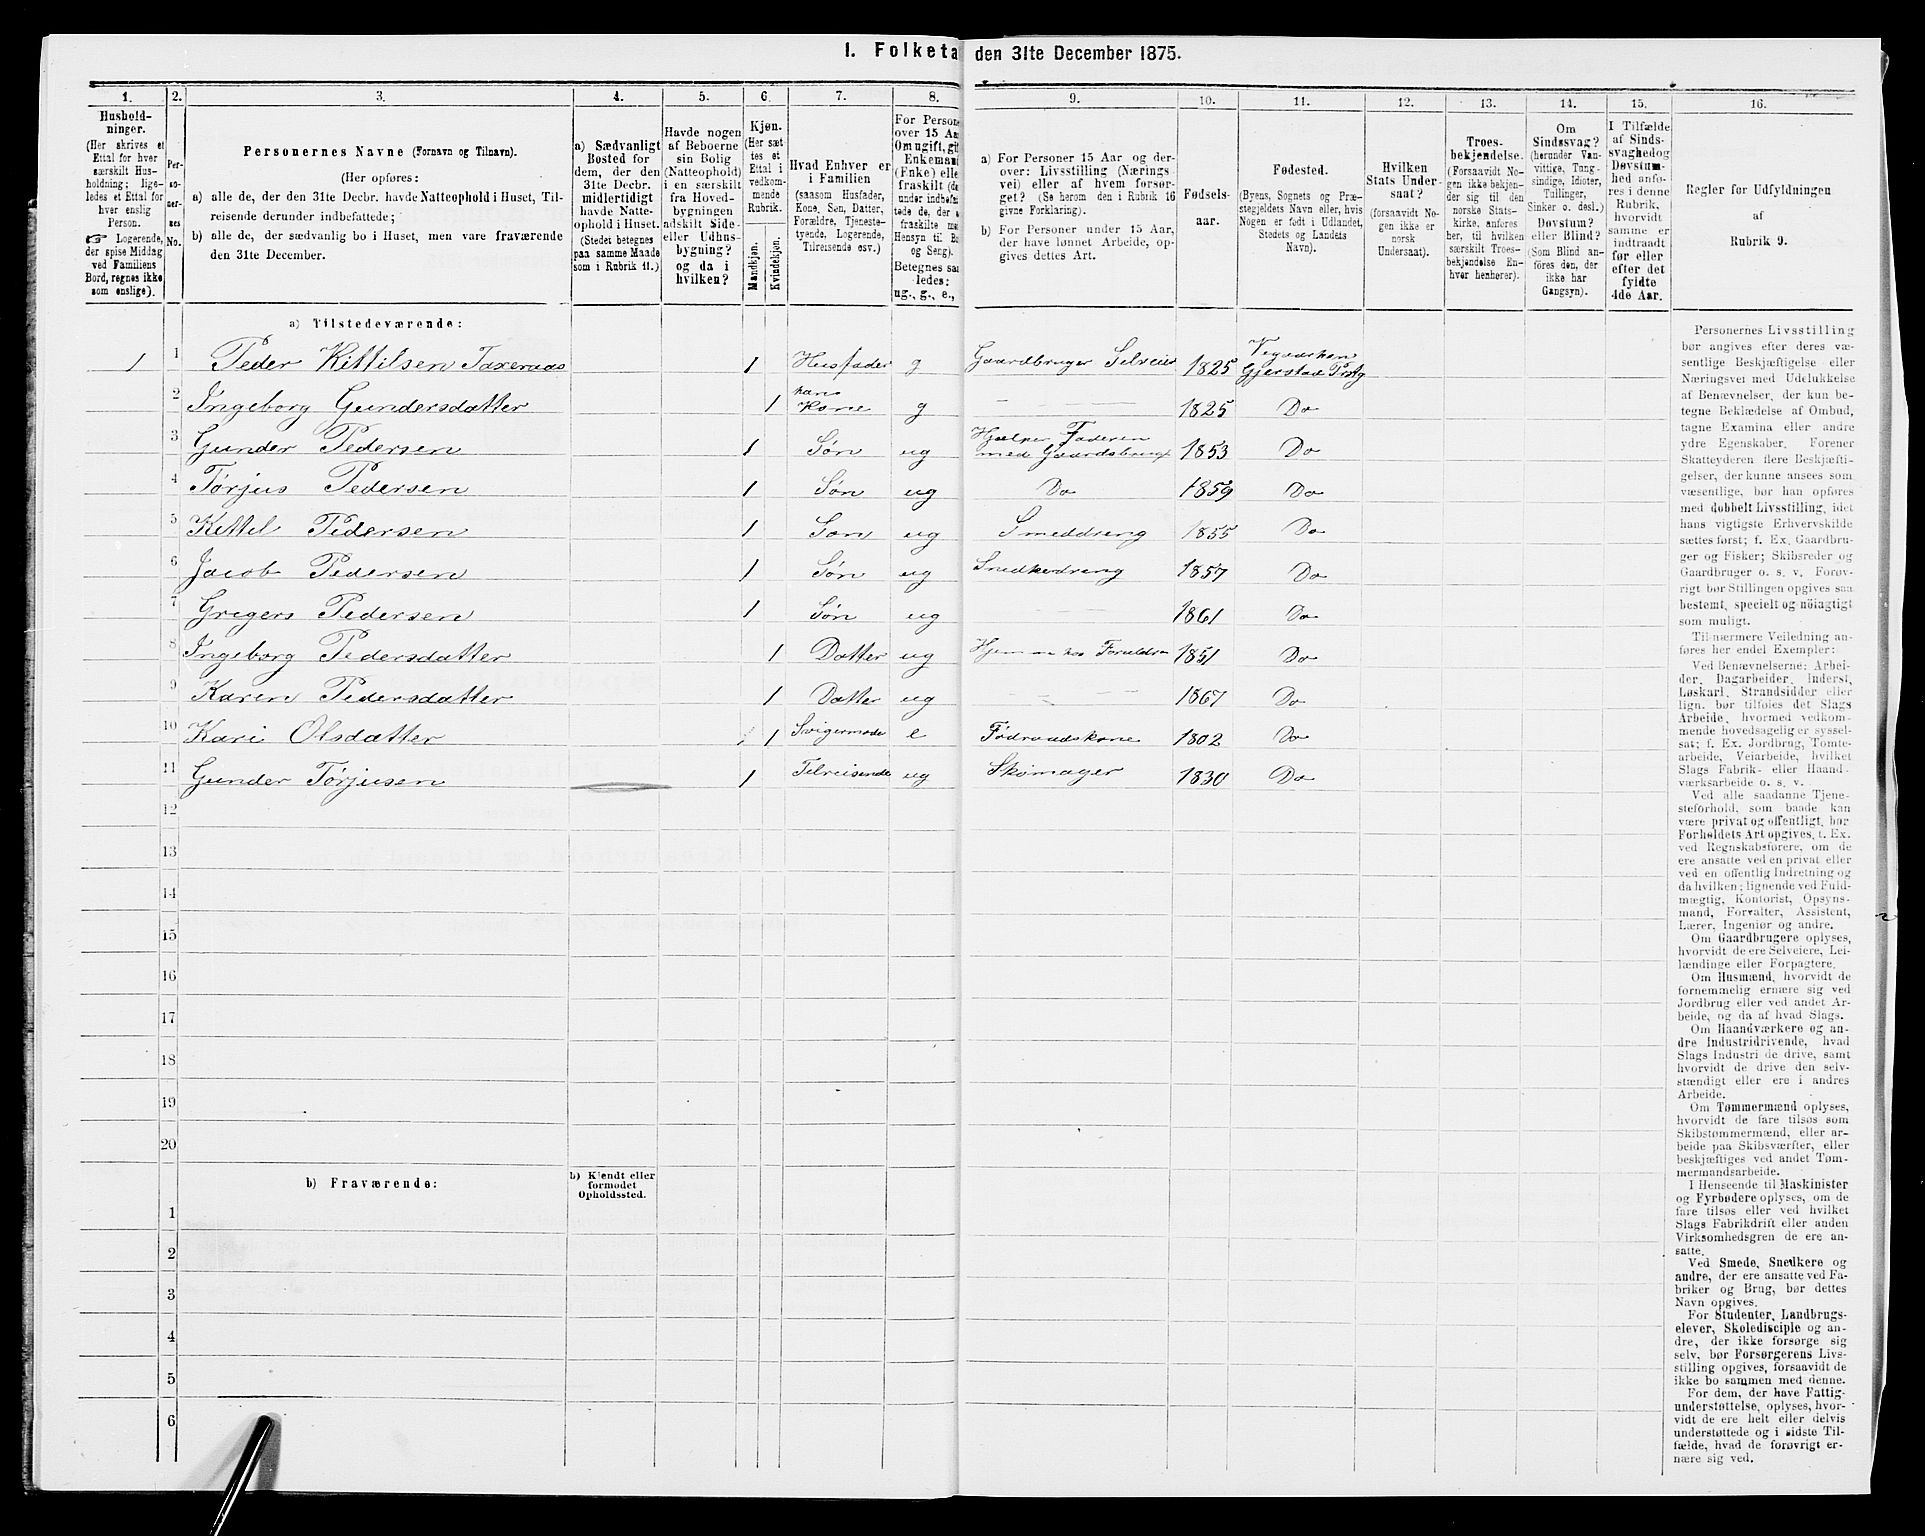 I. Folketa den 31te December 1875.
1.
Hushold-
ninger.
(Her skrives et
Ettal for hver
særskilt Hus-
holdning; lige-
ledes et Ettal for
hver enslig
Person.
☞ Logerende,
der spise Middag
ved Familiens
Bord, regnes ikke
som enslige).
2.
Per-
so-
ner-
nes
No.
3.
Personernes Navne (Fornavn og Tilnavn).
(Her opføres:
a) alle de, der den 31te Decbr. havde Natteophold i Huset, Til-
reisende derunder indbefattede;
b) alle de, der sædvanlig bo i Huset, men vare fraværende
den 31te December.
4.
a) Sædvanligt
Bosted for
dem, der den
31te Decbr.
midlertidigt
havde Natte-
ophold i Huset.
(Stedet betegnes
paa samme Maade
som i Rubrik 11.)
5.
Havde nogen
af Beboerne
sin Bolig
(Natteophold)
i en særskilt
fra Hoved-
bygningen
adskilt Side-
eller Udhus-
bygning?
og da i
hvilken?
6.
Kjøn.
(Her sæt
tes et
Ettal i
vedkom-
mende
Rubrik.
Mandkjøn.
Kvindekjøn.
7.
Hvad Enhver er
i Familien
(saasom Husfader,
Kone, Søn, Datter,
Forældre, Tjeneste-
tyende, Logerende,
Tilreisende osv.)
8.
For Persone
over 15 Aa
Om ugift, gif
Enkeman
(Enke) elle
fraskilt (de
under indbefa
tede de, der e
fraskilte me
Hensyn til Bo
og Seng).
Betegnes saa
ledes:
ug., g., e.,
9.
a) For Personer 15 Aar og der-
over: Livsstilling (Nærings
vei) eller af hvem forsør-
get? (Se herom den i Rubrik 16
givne Forklaring).
b) For Personer under 15 Aar,
der have lønnet Arbeide, op-
gives dettes Art.
10.
Fødsels-
aar.
11.
Fødested.
(Byens, Sognets og Præ-
stegjeldets Navn eller, hvis
Nogen er født i Udlandet,
Stedets og Landets
Navn).
12.
Hvilken
Stats Under-
saat?
(forsaavidt No-
gen ikke er
norsk
Undersaat).
13.
Troes-
bekjendelse.
(Forsaavidt No-
gen ikke bekjen-
der sig til den
norske Stats-
kirke, anføres
her, til hvilken
særskilt Troes-
bekjendelse En-
hver henhører).
14.
Om
Sindssvag?
(herunder Van-
vittige, Tung-
sindige, Idioter,
Tullinger,
Sinker o. desl.)
Døvstum?
eller Blind?
(Som Blind an-
føres den, der
ikke har
Gangsyn).
15.
I Tilfælde
af Sinds-
svaghed og
Døvstum-
hed anfø-
res i denne
Rubrik,
hvorvidt
samme er
indtraadt
før eller
efter det
fyldte
4de Aar.
16.
Regler for Udfyldningen
af
Rubrik 9.
a) Tilstedeværende:
1 1 Peder Kittilsen Taxeraas 1 Husfader g Gaardbruger Selveier 1825 Vegaarshen Gjerstad Prstg
2 Ingeborg Gundersdatter 1 hans Kone g 1825 Do
3 Gunder Pedersen 1 Søn ug Hjelper Faderen med Gaardsbrug 1853 Do
4 Torjus Pedersen 1 Søn ug Do 1859 Do
5 Kittel Pedersen 1 Søn ug Smeddreng 1855 Do
6 Jacob Pedersen 1 Søn ug Snedkerdreng 1857 Do
7 Gregers Pedersen 1 Søn ug 1861 Do
8 Ingeborg Pedersdatter 1 Datter ug Hjemme hos 1851 Do
9 Karen Pedersdatter 1 Datter ug 1867 Do
10 Kari Olsdatter 1 Svigermode e Føderaadskone 1802 Do
11 Gunder Tørjusen 1 Tilreisende ug Skomager 1830 Do
12
13
14
15
16
17
18
19
20
b) Fraværende:
b) Kjendt eller
formodet
Opholdssted.
1
2
3
4
5
6
Personernes Livsstilling
bør angives efter deres væ-
sentlige Beskjæftigelse eller
Næringsvei med Udelukkelse
af Benævnelser, der kun be-
tegne Beklædelse af Ombud,
tagne Examina eller andre
ydre Egenskaber. Forener
Skatteyderen flere Beskjæfti-
gelser, der kunne ansees som
væsentlige, bør han opføres
med dobbelt Livsstilling, idet
hans vigtigste Erhvervskilde
sættes først; f. Ex. Gaardbru-
ger og Fisker; Skibsreder og
Gaardbruger o. s. v. Forøv-
rigt bør Stillingen opgives saa
bestemt, specielt og nöiagtigt
som muligt.
Til nærmere Veiledning an-
føres her endel Exempler:
Ved Benævnelserne: Arbei-
der, Dagarbeider, Inderst,
Løskarl, Strandsidder eller
lign. bør tilføies det Slags
Arbeide, hvormed vedkom-
mende hovedsagelig er syssel-
sat; f. Ex. Jordbrug, Tomte-
arbeide, Veiarbeide, hvilket
Slags Fabrik- eller Haand-
værksarbeide o. s. v.
Ved alle saadanne Tjene-
steforhold, som baade kan
være privat og offentligt, bør
Forholdets Art opgives, t. Ex.
ved Regnskabsførere, om de
ere ansatte ved en privat eller
ved en offentlig Indretning og
da hvilken; lignende ved Fuld-
mægtig, Kontorist, Opsyns-
mand, Forvalter, Assistent,
Lærer, Ingeniør og andre.
Om Gaardbrugere oplyses,
hvorvidt de ere Selveiere, Lei-
lændinge eller Forpagtere.
Om Husmænd, hvorvidt de
fornemmelig ernære sig ved
Jordbrug eller ved andet Ar-
beide, og da af hvad Slags.
Om Haandværkere og an-
dre Industridrivende, hvad
Slags Industri de drive, samt
hvorvidt de drive den selv-
stændigt eller ere i andres
Arbeide.
Om Tømmermænd oplyses,
hvorvidt de fare tilsøs som
Skibstømmermænd, eller ar-
beide paa Skibsværfter, eller
beskjæftiges ved andet Tøm-
mermandsarbeide.
I Henseende til Maskinister
og Fyrbødere oplyses, om de
fare tilsøs eller ved hvilket
Slags Fabrikdrift eller anden
Virksomhedsgren de ere an-
satte.
Ved Smede, Snedkere og
andre, der ere ansatte ved Fa-
briker og Brug, bør dettes
Navn opgives.
For Studenter, Landbrugs-
elever, Skoledisciple og an-
dre, der ikke forsørge sig
selv, bør Forsørgerens Livs-
stilling opgives, forsaavidt de
ikke bo sammen med denne.
For dem, der have Fattig-
understøttelse, oplyses, hvor-
vidt de ere helt eller delvis
understøttede og i sidste Til-
fælde, hvad de forøvrigt er-
nære sig ved.